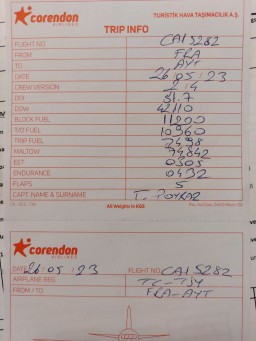 corendon
AIRLINES
TURİSTİK HAVA TAŞIMACILIK A.Ş.
TRIP INFO
FLIGHT NO CAI 5282
FROM FRA
TO AYT
DATE 26.05.23
CREW VERSION 2/4
DOI 31.7
DOW 42110
BLOCK FUEL 11200
T/O FUEL 10960
TRIP FUEL
MALTOW 74842
EST 0305
ENDURANCE 0432
FLAPS 5
CAPT. NAME & SURNAME T. POYRAZ
All Weights in KGS
corendon
AIRLINES
DATE 26.05.23 FLIGHT NO CAI 5282
AIRPLANE REG. TC-TJY
FROM / TO FRA-AYT